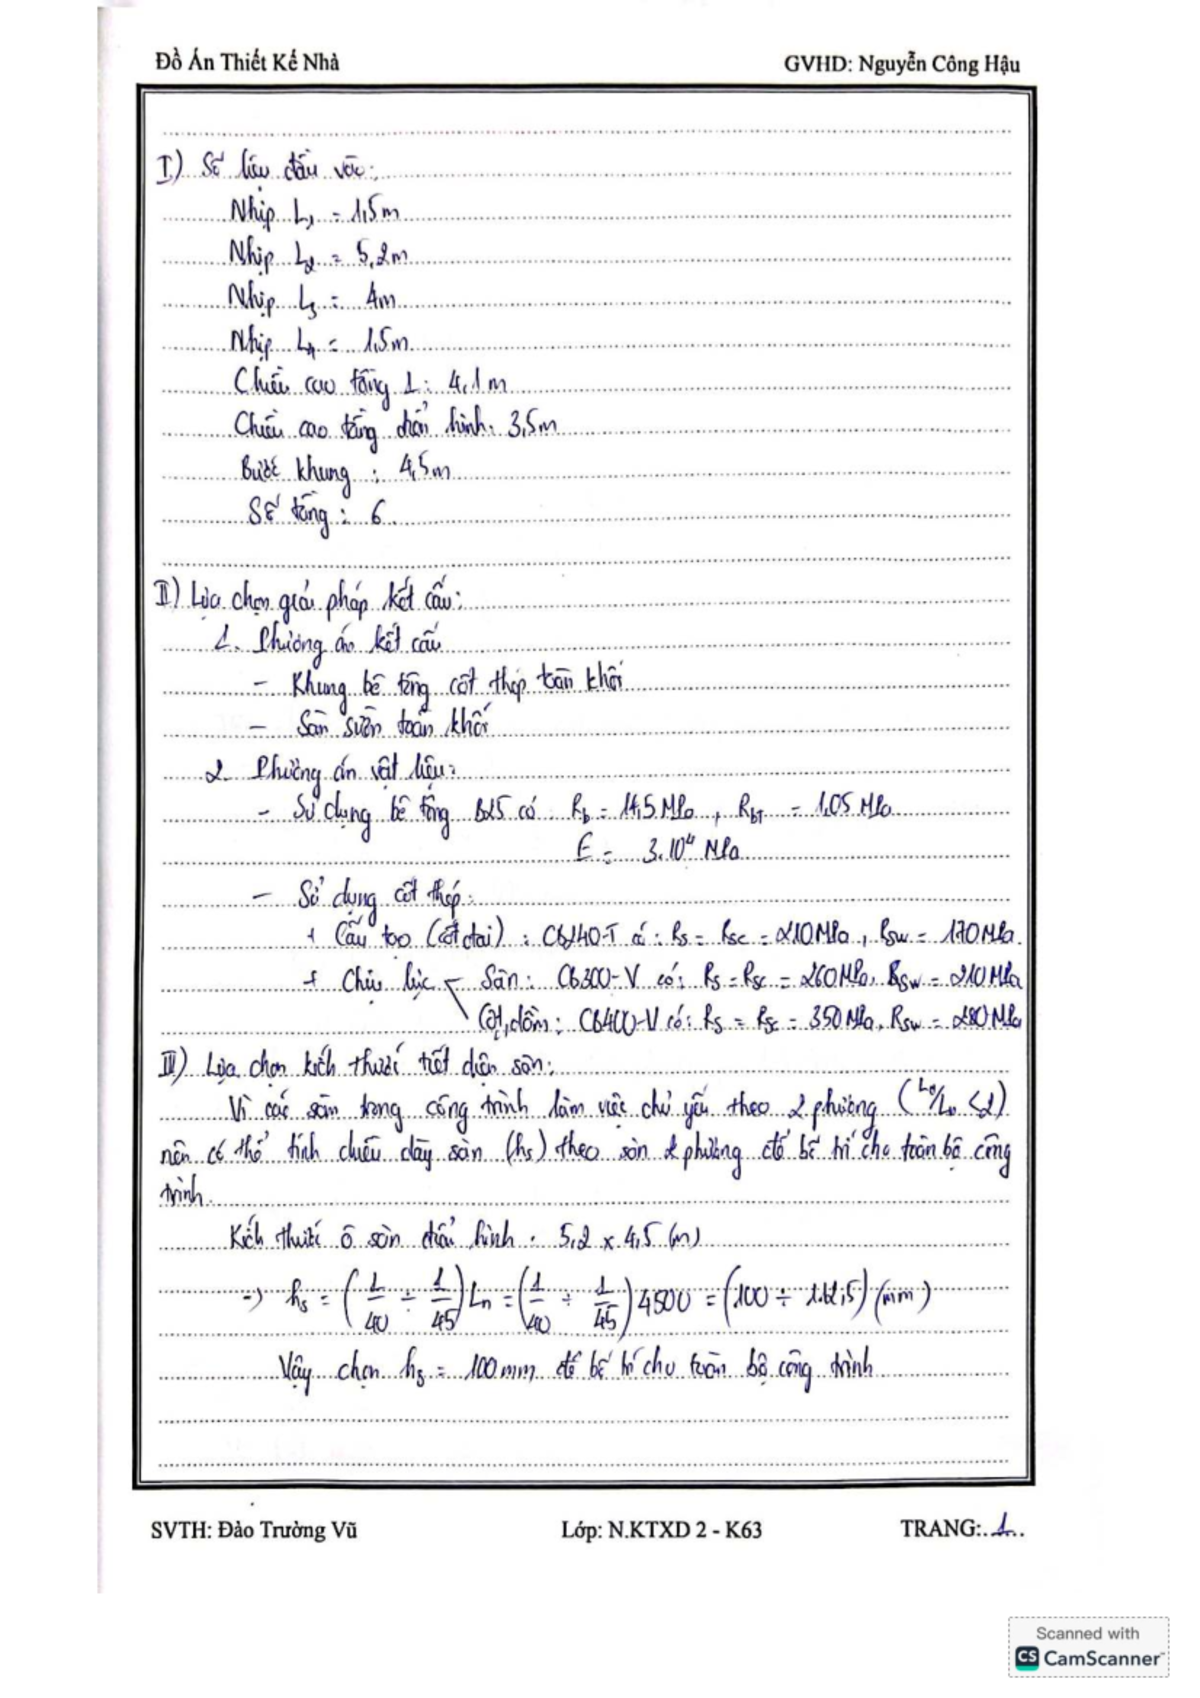 Đồ Án Thiết Kế Nhà
GVHD: Nguyễn Công Hậu
I) Số liệu đầu vào:
Nhịp L1 = 1,5m
Nhịp L2 = 5,2m
Nhịp L3 = 4m
Nhịp L4 = 1,5m
Chiều cao tầng 1: 4,1m
Chiều cao tầng điển hình: 3,5m
Bước khung : 4,5m
Số tầng : 6
II) Lựa chọn giải pháp kết cấu:
1. Phương án kết cấu
- Khung bê tông cốt thép toàn khối
- Sàn sườn toàn khối
2. Phương án vật liệu:
- Sử dụng bê tông B25 có: Rb = 14,5 MPa, RbT = 1,05 MPa
E = 3.10⁴ MPa
- Sử dụng cốt thép:
+ Cấu tạo (cốt đai) : CB240-T có: Rs = Rsc = 210MPa, Rsw = 170MPa
+ Chịu lực Sàn: CB300-V có: Rs = Rsc = 260MPa, Rsw = 210MPa
Cột, dầm: CB400-V có: Rs = Rsc = 350MPa, Rsw = 280MPa
III) Lựa chọn kích thước tiết diện sàn:
Vì các sàn trong công trình làm việc chủ yếu theo 2 phương (Ld/Ln < 2)
nên có thể tính chiều dày sàn (hs) theo sàn 2 phương để bố trí cho toàn bộ công
trình.
Kích thước ô sàn điển hình: 5,2 x 4,5 (m)
-> hs = (1/40 ÷ 1/45) Ln = (1/40 ÷ 1/45) 4500 = (100 ÷ 112,5) (mm)
Vậy chọn hs = 100mm để bố trí cho toàn bộ công trình
SVTH: Đào Trường Vũ
Lớp: N.KTXD 2 - K63
TRANG: 1
Scanned with
CS CamScanner